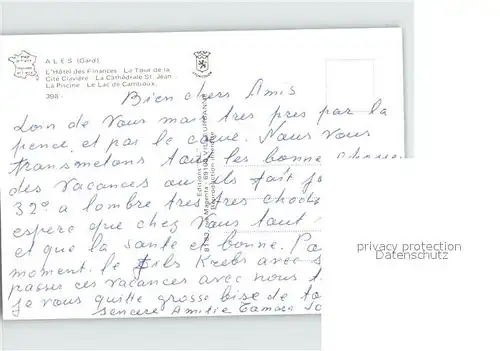 ALES (Gard)
L'Hôtel des Finances. La Tour de la
Cité Clavière. La Cathédrale St. Jean
La Piscine. Le Lac de Camboux.
398 -
Bien chers Amis
Loin de Vous mais tres pres par la
pence, et par le cœur. Nous Vous
transmetons tous les bonne choses
des Vacances ou ils fait
32° a lombre tres tres chod
espere que chez Vous tout
et que la sante et bonne.
moment. le fils Krebs avec
passer ces vacances avec nous
je vous quitte grosse bise de
sencere Amitie Tamara
Editions
Magenta - 69100 VILLEURBANNE
Reproduction interdite
privacy protection
Datenschutz